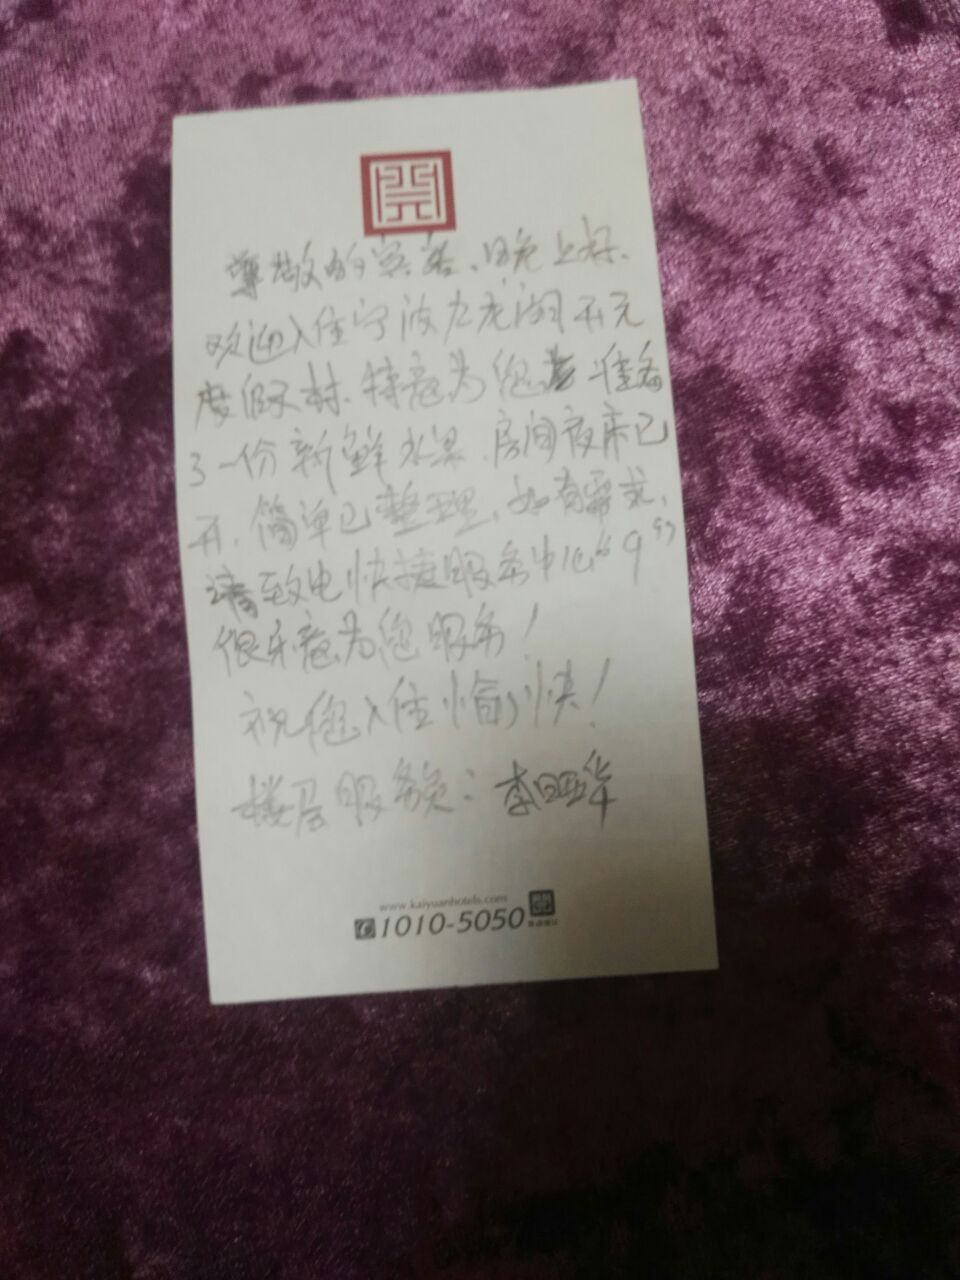 尊敬的宾客、晚上好、
欢迎入住宁波九龙湖开元
度假村、特意为您准备
了一份新鲜水果、房间夜床已
开、简单已整理、如有需求、
请致电快捷服务中心“9”
很乐意为您服务！
祝您入住愉快！
楼层服务员：李
www.kaiyuanhotels.com
1010-5050